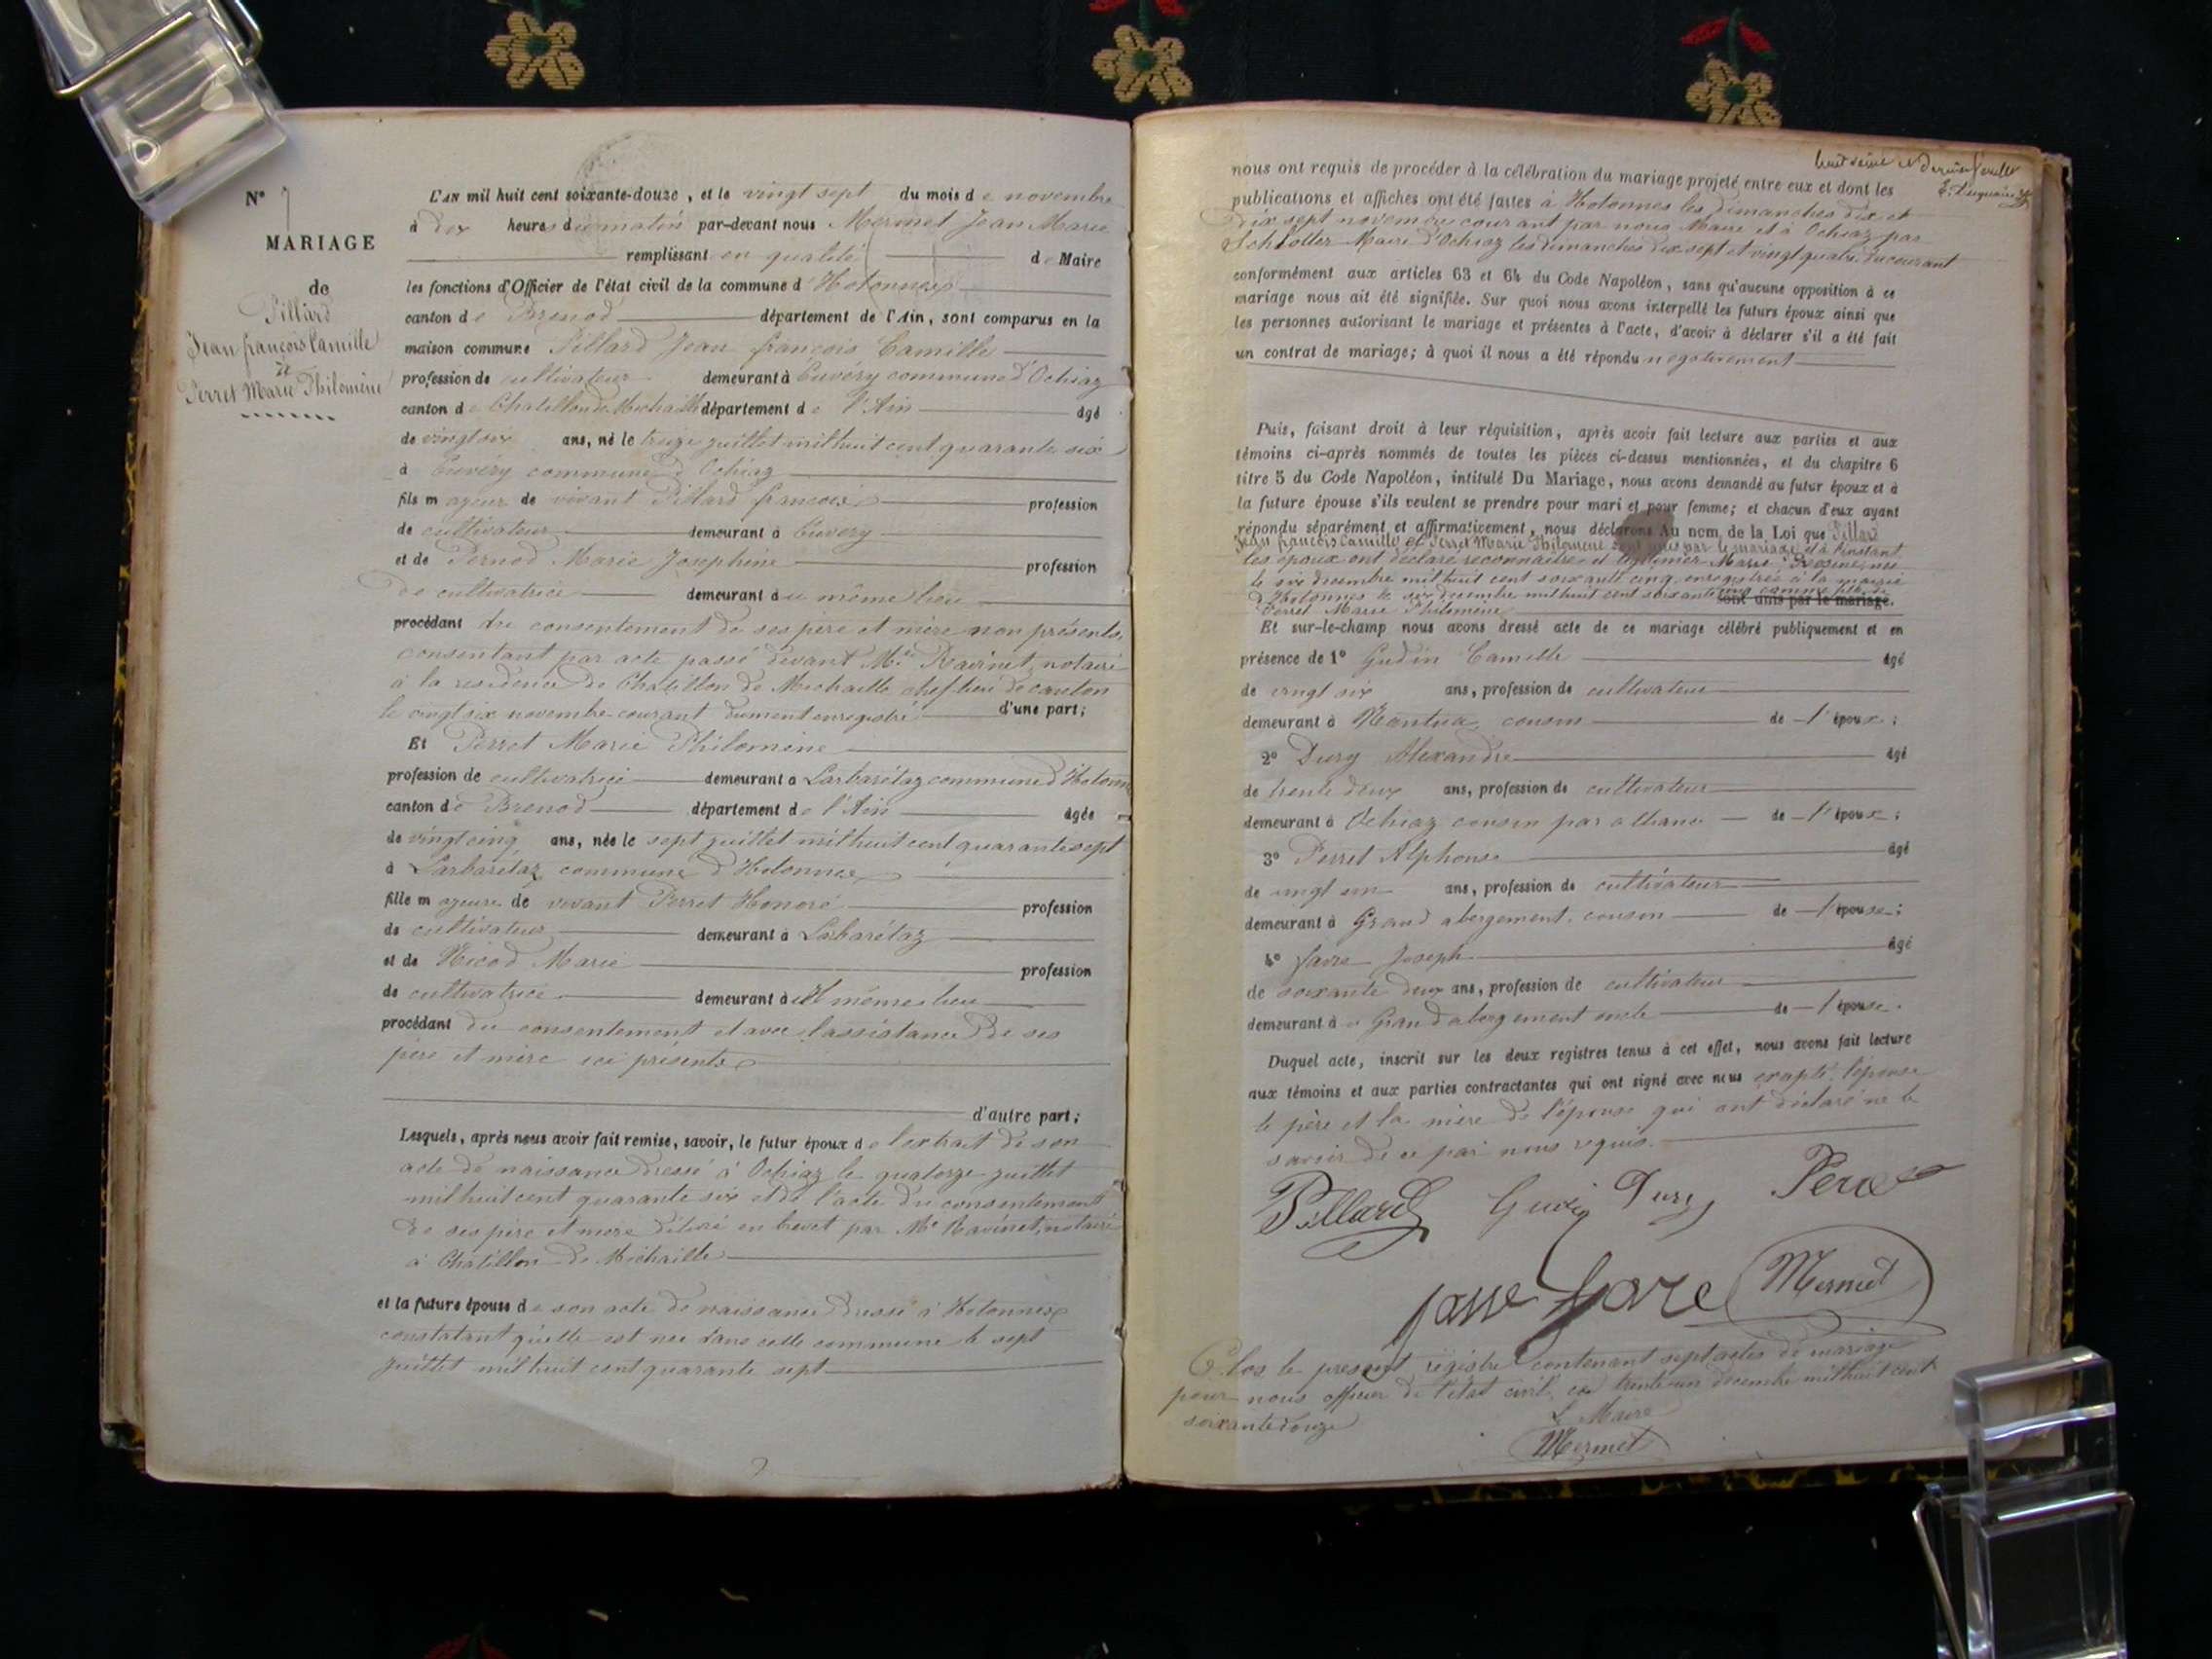 N° 7
MARIAGE
de
Pillard
Jean françois Camille
et
Perret Marie Philomène
L'AN mil huit cent soixante-douze, et le vingt sept du mois de novembre
à dix heures du matin par-devant nous Mermet Jean Marie
remplissant en qualité de Maire
les fonctions d'Officier de l'état civil de la commune d'Hotonnes
canton de Brenod département de l'Ain, sont comparus en la
maison commune Pillard Jean françois Camille
profession de cultivateur demeurant à Cuvéry commune d'Ochiaz
canton de Chatillon de Michaille département de l'Ain âgé
de vingt six ans, né le treize juillet mil huit cent quarante six
à Cuvéry commune d'Ochiaz
fils majeur de vivant Pillard françois profession
de cultivateur demeurant à Cuvery
et de Pernod Marie Josephine profession
de cultivatrice demeurant au même lieu
procédant du consentement de ses père et mère non présents,
consentant par acte passé devant Me Ravinet, notaire
à la residence de Chatillon de Michaille chef lieu de canton
le vingt six novembre courant dument enregistré d'une part;
Et Perret Marie Philomène
profession de cultivatrice demeurant à Larbarétaz commune d'Hotonnes
canton de Brenod département de l'Ain âgée
de vingt cinq ans, née le sept juillet mil huit cent quarante sept
à Larbarétaz commune d'Hotonnes
fille majeure de vivant Perret Honoré profession
de cultivateur demeurant à Larbarétaz
et de Nicod Marie profession
de cultivatrice demeurant au même lieu
procédant du consentement et avec l'assistance de ses
père et mère ici présents
d'autre part;
Lesquels, après nous avoir fait remise, savoir, le futur époux de l'extrait de son
acte de naissance dressé à Ochiaz le quatorze juillet
mil huit cent quarante six et de l'acte du consentement
de ses père et mère délivré en brevet par Me Ravinet, notaire
à Chatillon de Michaille
et la future épouse de son acte de naissance dressé à Hotonnes
constatant qu'elle est née dans cette commune le sept
juillet mil huit cent quarante sept
huitième et dernier feuillet
nous ont requis de procéder à la célébration du mariage projeté entre eux et dont les
publications et affiches ont été faites à Hotonnes les dimanches dix et
dix sept novembre courant par nous Maire et à Ochiaz par
Schlotter Maire d'Ochiaz les dimanches dix sept et vingt quatre du courant
conformément aux articles 63 et 64 du Code Napoléon, sans qu'aucune opposition à ce
mariage nous ait été signifiée. Sur quoi nous avons interpellé les futurs époux ainsi que
les personnes autorisant le mariage et présentes à l'acte, d'avoir à déclarer s'il a été fait
un contrat de mariage; à quoi il nous a été répondu négativement
Puis, faisant droit à leur réquisition, après avoir fait lecture aux parties et aux
témoins ci-après nommés de toutes les pièces ci-dessus mentionnées, et du chapitre 6
titre 5 du Code Napoléon, intitulé Du Mariage, nous avons demandé au futur époux et à
la future épouse s'ils veulent se prendre pour mari et pour femme; et chacun d'eux ayant
répondu séparément et affirmativement, nous déclarons Au nom de la Loi que Pillard
Jean françois Camille et Perret Marie Philomène sont unis par le mariage et à l'instant
les époux ont déclaré reconnaitre et légitimer Marie Rosine, née
le six decembre mil huit cent soixante cinq, enregistrée à la mairie
d'Hotonnes le six decembre mil huit cent soixante cinq comme fille de
Perret Marie Philomène sont unis par le mariage.
Et sur-le-champ nous avons dressé acte de ce mariage célébré publiquement et en
présence de 1° Gudin Camille âgé
de vingt six ans, profession de cultivateur
demeurant à Nantua, cousin de l'époux;
2° Dury Alexandre âgé
de trente deux ans, profession de cultivateur
demeurant à Ochiaz cousin par alliance de l'époux;
3° Perret Alphonse âgé
de vingt un ans, profession de cultivateur
demeurant à Grand abergement, cousin de l'épouse;
4° favre Joseph âgé
de soixante deux ans, profession de cultivateur
demeurant à Grand abergement oncle de l'épouse.
Duquel acte, inscrit sur les deux registres tenus à cet effet, nous avons fait lecture
aux témoins et aux parties contractantes qui ont signé avec nous excepté l'épouse
le père et la mère de l'épouse qui ont déclaré ne le
savoir de ce par nous requis.
Pillard Gudin Dury Peret
favre Mermet
Clos le present régistre contenant sept actes de mariage
pour nous officier de l'état civil, ce trente un decembre mil huit cent
soixante douze
Le Maire
Mermet